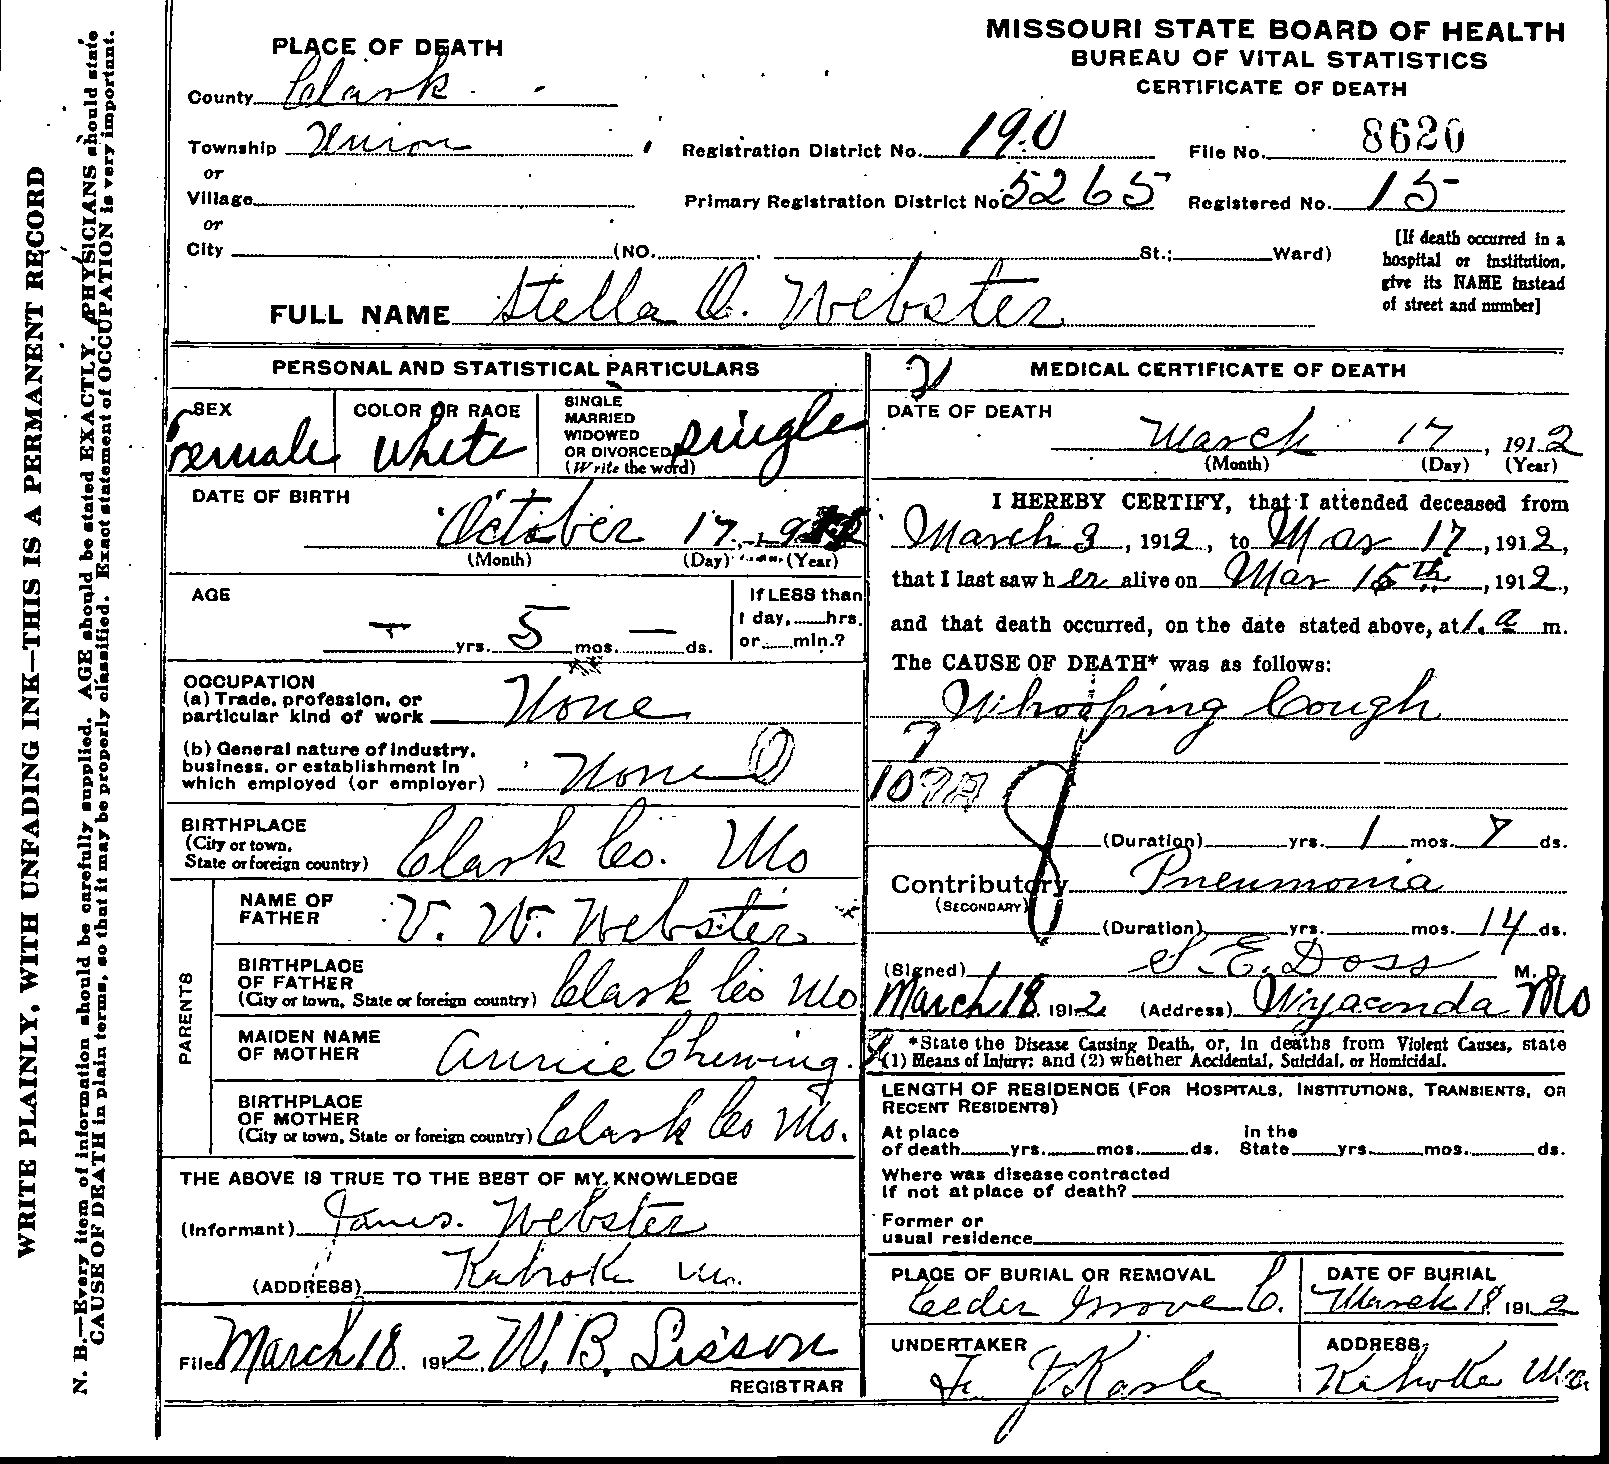 WRITE PLAINLY, WITH UNFADING INK—THIS IS A PERMANENT RECORD
N. B.—Every item of information should be carefully supplied. AGE should be stated EXACTLY. PHYSICIANS should state
CAUSE OF DEATH in plain terms, so that it may be properly classified. Exact statement of OCCUPATION is very important.
MISSOURI STATE BOARD OF HEALTH
BUREAU OF VITAL STATISTICS
CERTIFICATE OF DEATH
PLACE OF DEATH
County Clark
Township Union
or
Village
or
City (NO. St.; Ward)
Registration District No. 190 File No. 8620
Primary Registration District No 5265 Registered No. 15
[If death occurred in a
hospital or institution,
give its NAME instead
of street and number]
FULL NAME Stella O. Webster
PERSONAL AND STATISTICAL PARTICULARS
SEX Female
COLOR OR RACE White
SINGLE
MARRIED
WIDOWED
OR DIVORCED
(Write the word) single
DATE OF BIRTH
October 17, 19
(Month) (Day) (Year)
AGE
— yrs. 5 mos. — ds.
If LESS than
1 day, hrs.
or min.?
OCCUPATION
(a) Trade, profession, or
particular kind of work None
(b) General nature of industry,
business, or establishment in
which employed (or employer) None
BIRTHPLACE
(City or town,
State or foreign country) Clark Co. Mo
PARENTS
NAME OF
FATHER V. W. Webster
BIRTHPLACE
OF FATHER
(City or town, State or foreign country) Clark Co Mo
MAIDEN NAME
OF MOTHER Annie Chewning
BIRTHPLACE
OF MOTHER
(City or town, State or foreign country) Clark Co Mo.
THE ABOVE IS TRUE TO THE BEST OF MY KNOWLEDGE
(Informant) James. Webster
(ADDRESS) Kahoka Mo.
Filed March 18 1912 W. B. Sisson
REGISTRAR
MEDICAL CERTIFICATE OF DEATH
DATE OF DEATH
March 17, 1912
(Month) (Day) (Year)
I HEREBY CERTIFY, that I attended deceased from
March 3, 1912, to Mar 17, 1912,
that I last saw her alive on Mar 15th, 1912,
and that death occurred, on the date stated above, at 1. a m.
The CAUSE OF DEATH* was as follows:
Whooping Cough
(Duration) yrs. 1 mos. 7 ds.
Contributory Pneumonia
(SECONDARY)
(Duration) yrs. mos. 14 ds.
(Signed) S. E. Doss M. D.
March 18, 1912 (Address) Wyaconda Mo
*State the Disease Causing Death, or, in deaths from Violent Causes, state
(1) Means of Injury; and (2) whether Accidental, Suicidal, or Homicidal.
LENGTH OF RESIDENCE (FOR HOSPITALS, INSTITUTIONS, TRANSIENTS, OR
RECENT RESIDENTS)
At place In the
of death yrs. mos. ds. State yrs. mos. ds.
Where was disease contracted
If not at place of death?
Former or
usual residence
PLACE OF BURIAL OR REMOVAL
Ceder Grove C.
DATE OF BURIAL
March 18 1912
UNDERTAKER
Karle
ADDRESS
Kahoka Mo